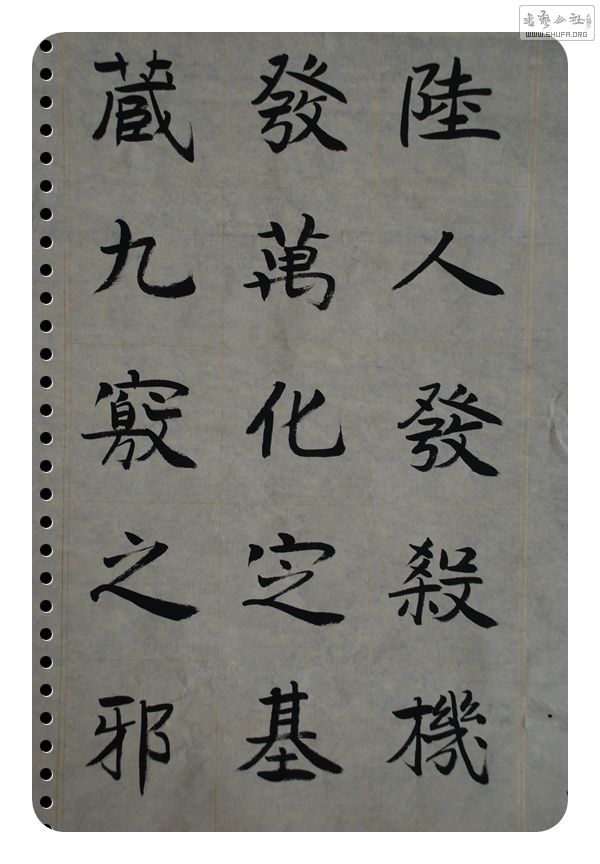 陸人發殺機
發萬化定基
蔵九竅之邪
書藝公社
WWW.SHUFA.ORG